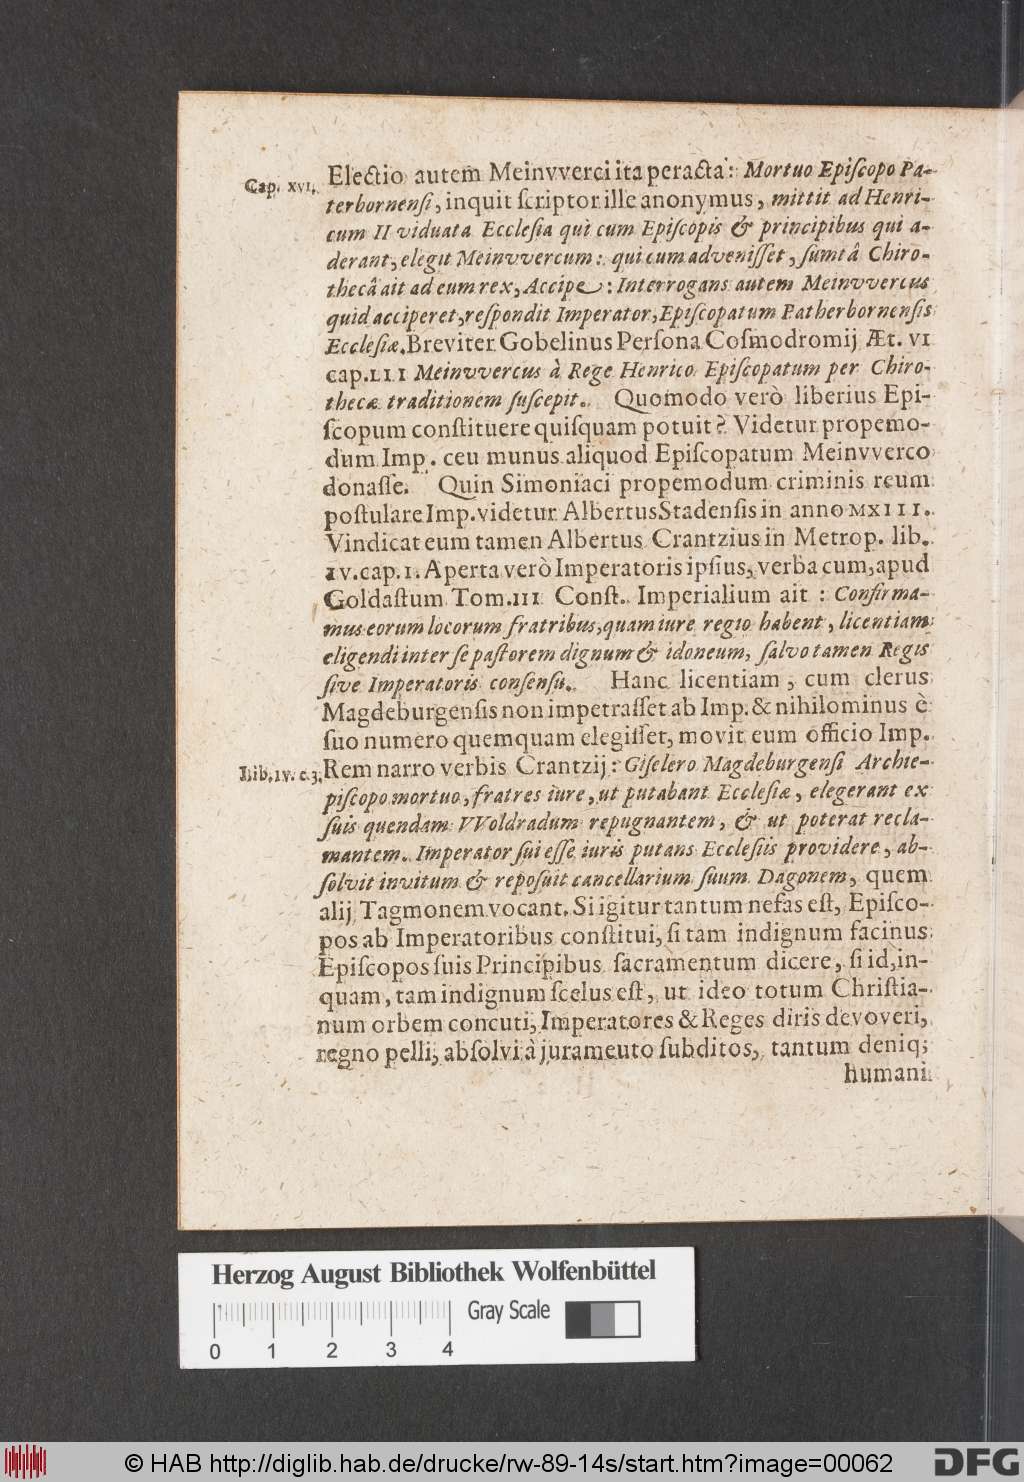 Cap. XVI.
Electio autem Meinvverci ita peracta: Mortuo Episcopo Pa-
terbornensi, inquit scriptor ille anonymus, mittit ad Henri-
cum II viduata Ecclesia qui cum Episcopis & principibus qui a-
derant, elegit Meinvvercum: qui cum advenisset, sumtâ Chiro-
thecâ ait ad eum rex, Accipe: Interrogans autem Meinvvercus
quid acciperet, respondit Imperator, Episcopatum Patherbornensis
Ecclesiæ. Breviter Gobelinus Persona Cosmodromij Æt. VI
cap. LII Meinvvercus à Rege Henrico Episcopatum per Chiro-
thecæ traditionem suscepit. Quomodo verò liberius Epi-
scopum constituere quisquam potuit? Videtur propemo-
dum Imp. ceu munus aliquod Episcopatum Meinvverco
donasse. Quin Simoniaci propemodum criminis reum
postulare Imp. videtur Albertus Stadensis in anno MXIII.
Vindicat eum tamen Albertus Crantzius in Metrop. lib.
IV. cap. I. Aperta verò Imperatoris ipsius, verba cum, apud
Goldastum Tom. III Const. Imperialium ait: Confirma-
mus eorum locorum fratribus, quam iure regio habent, licentiam
eligendi inter se pastorem dignum & idoneum, salvo tamen Regis
sive Imperatoris consensu. Hanc licentiam, cum clerus
Magdeburgensis non impetrasset ab Imp. & nihilominus è
suo numero quemquam elegisset, movit eum officio Imp.
Lib. IV. c. 3.
Rem narro verbis Crantzij: Giselero Magdeburgensi Archie-
piscopo mortuo, fratres iure, ut putabant Ecclesiæ, elegerant ex
suis quendam VVoldradum repugnantem, & ut poterat recla-
mantem. Imperator sui esse iuris putans Ecclesiis providere, ab-
solvit invitum & reposuit cancellarium suum Dagonem, quem
alij Tagmonem vocant. Si igitur tantum nefas est, Episco-
pos ab Imperatoribus constitui, si tam indignum facinus
Episcopos suis Principibus sacramentum dicere, si id, in-
quam, tam indignum scelus est, ut ideo totum Christia-
num orbem concuti, Imperatores & Reges diris devoveri,
regno pelli, absolvi à jurameuto subditos, tantum deniq;
humani
Herzog August Bibliothek Wolfenbüttel
Gray Scale
0 1 2 3 4
© HAB http://diglib.hab.de/drucke/rw-89-14s/start.htm?image=00062
DFG